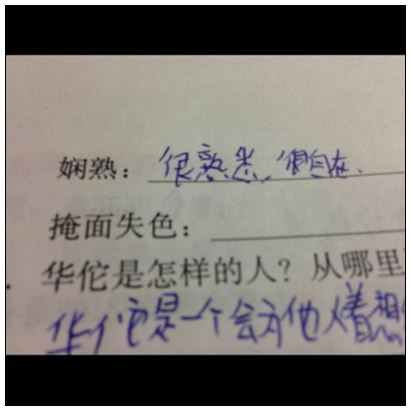 娴熟：很熟悉，很自在.
掩面失色：
.华佗是怎样的人？从哪里
华佗是一个会为他人着想